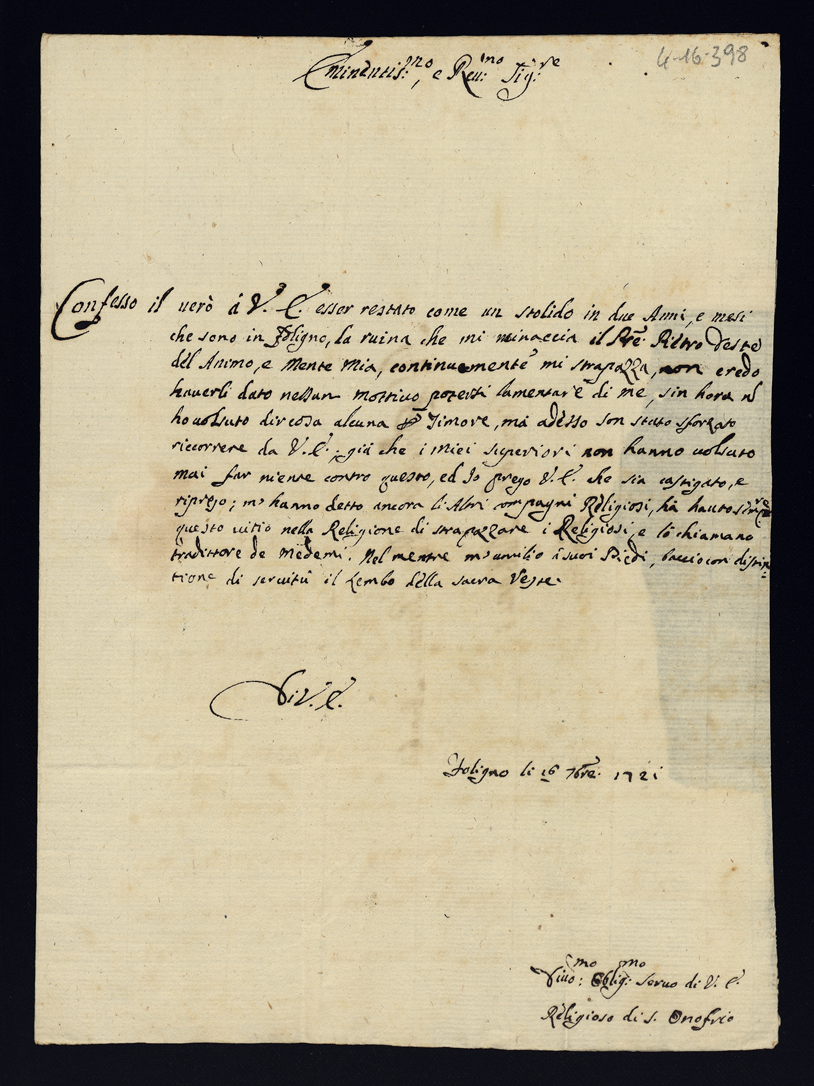 4-16-398
Eminentis:mo, e Reu:mo Sig:re
Confesso il uerò á V. E. esser restato come un stolido in due Anni, e mesi
che sono in Foligno, la ruina che mi minaccia il Pre Pietro
dél Animo, e Mente Mia, continuamente mi strapazza, non credo
hauerli dato nessun mottiuo potersi lamentare di me, sin hora nō
ho uolsuto dir cosa alcuna Timore, má adésso son stato sforzato
riccorrere da V. E. giá che i miei superiori non hanno uolsuto
mai far niente contro questo, ed Io prego V. E. che sia castigato, e
riprego; m'hanno detto ancora li Altri compagni Réligiosi, há hauto sempre
questo uitio nella Religione di strapazzare i Réligiosi, e ló chiamano
tradittore de Medemi. Nel mentre m'umilio á suoi Piedi, baccio con distin=
tione di seruitú il Lembo délla sacra Veste.
Di V. E.
Foligno li 16 7bre: 1721
Diuo:mo Oblig:mo seruo di V. E.
Réligioso di S. Onofrio